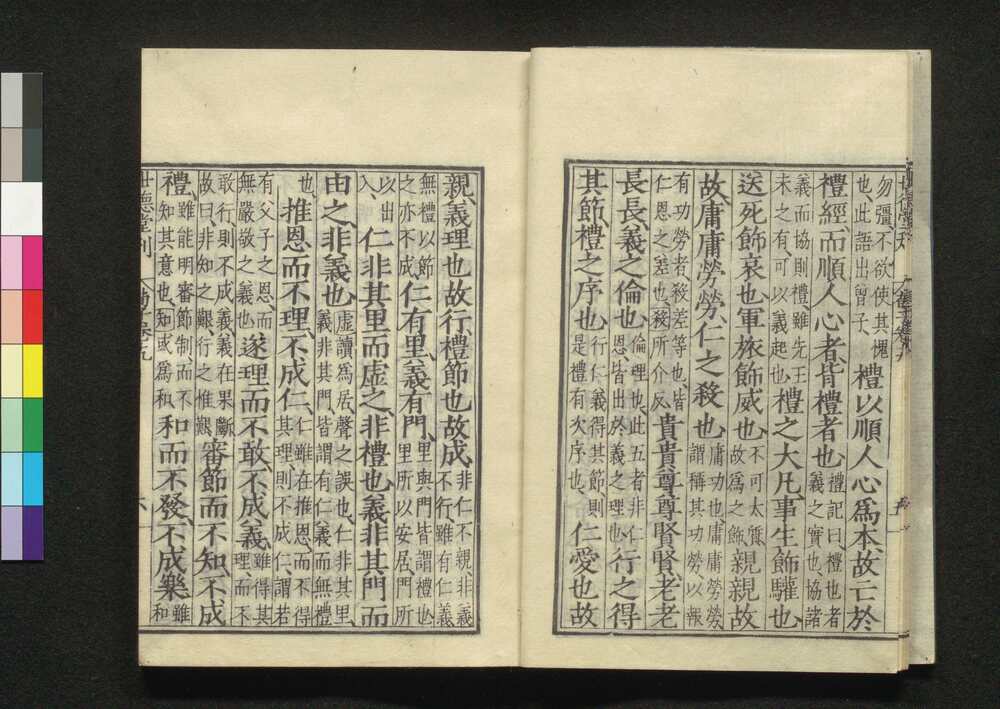 勿彊、不欲使其愧
也、此語出曾子、
禮以順人心爲本、故亡於
禮經、而順人心者、皆禮者也、
禮記曰禮也者
義之實也、協諸
義而協則禮、雖先王
未之有、可以義起也、
禮之大凡、事生飾驩也、
送死飾哀也、軍旅飾威也、
不可太質、
故爲之飾、
親親故
故、庸庸勞勞、仁之殺也、
庸功也、庸庸勞勞、
謂稱其功勞、以報
有功勞者、殺差等也、皆
仁恩之差也、殺所介反、
貴貴尊尊賢賢老老
長長、義之倫也、
倫理也、此五者非仁
恩、皆出於義之理也、
行之得
其節、禮之序也、
行仁義得其節、則
是禮有次序也、
仁愛也、故
親、義理也、故行、禮節也、故成、
非仁不親、非義
不行、雖有仁義
無禮以節
之、亦不成、
仁有里、義有門、
里與門皆謂禮也、
里所以安居、門所
以出
入、
仁非其里而虛之、非禮也、義非其門而
由之、非義也、
虛讀爲居、聲之誤也、仁非其里
義非其門、皆謂有仁義而無禮
也、
推恩而不理、不成仁、
仁雖在推恩、而不得
其理、則不成仁、謂若
有父子之恩、而
無嚴敬之義也、
遂理而不敢、不成義、
雖得其
理、而不
敢行則不成義、義在果斷、
故曰、非知之艱、行之惟艱、
審節而不知、不成
禮、
雖能明審節制、而不
知其意也、知或爲和、
和而不發、不成樂、
雖
和
世德堂刊
六